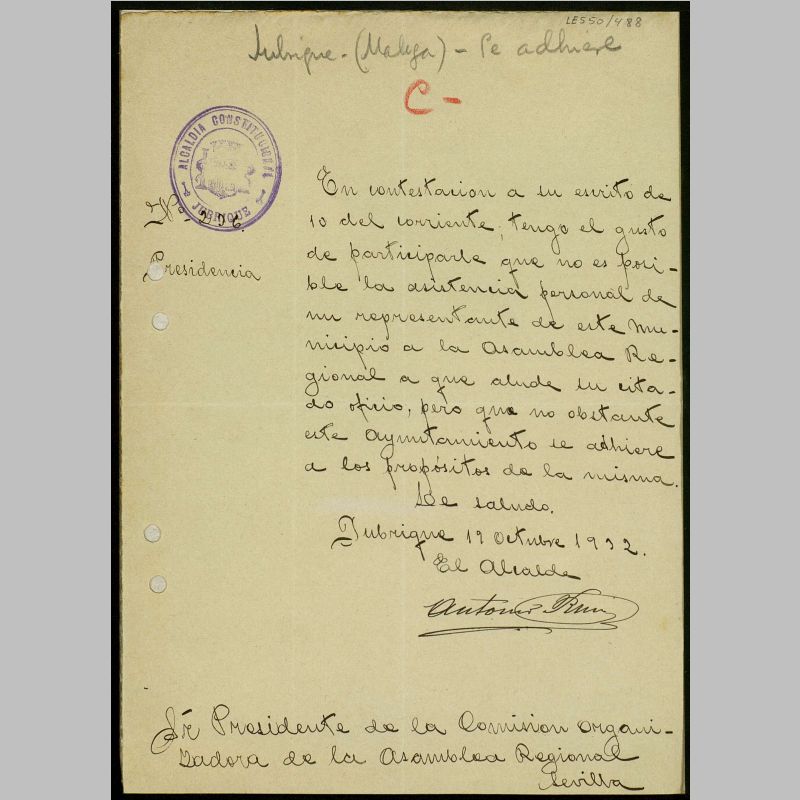 LE550/488
Jubrique - (Malaga) - Se adhiere
C-
ALCALDIA CONSTITUCIONAL
JUBRIQUE
Nº
Presidencia
En contestacion a su escrito de
10 del corriente, tengo el gusto
de participarle que no es posi-
ble la asistencia personal de
un representante de este Mu-
nicipio a la Asamblea Re-
gional a que alude su cita-
do oficio, pero que no obstante
este Ayuntamiento se adhiere
a los propósitos de la misma.
Le saludo.
Jubrique 19 Octubre 1932.
El Alcalde
Antonio Ruiz
Sr Presidente de la Comision Organi-
zadora de la Asamblea Regional
Sevilla